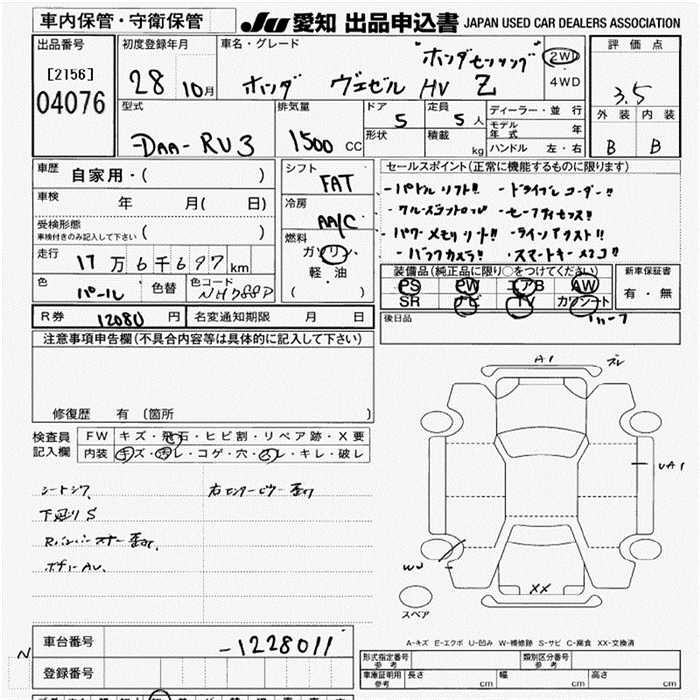 車内保管・守衛保管
JU 愛知 出品申込書 JAPAN USED CAR DEALERS ASSOCIATION
出品番号
[2156]
04076
初度登録年月
28 10月
車名・グレード
"ホンダセンシング"
ホンダ ヴェゼル HV Z
2WD
4WD
評価点
3.5
外装 内装
B B
型式
-DAA-RU3
排気量
1500 CC
ドア
5
定員
5人
形状
積載
kg
ディーラー・並行
モデル年式 年
ハンドル 左・右
車歴 自家用・( )
車検 年 月( 日)
受検形態
車検付きのみ記入して下さい ( )
走行 17万6千697km
色 パール 色替 色コード NH788P
シフト
FAT
冷房
AA/C
燃料
ガソリン・
軽・油
( )
セールスポイント(正常に機能するものに限ります)
-パドルシフト!! -ドライブレコーダー!!
-クルーズコントロール -セーフティセンス!!
-パワーメモリシート!! -ラインアシスト!!
-バックカメラ!! -スマートキー×2コ!!
装備品(純正品に限り○をつけてください)
PS PW エアB AW
SR ナビ TV カワシート
新車保証書
有・無
後日品
R券 12080円 名変通知期限 月 日
注意事項申告欄(不具合内容等は具体的に記入して下さい)
修復歴 有 〔箇所 〕
検査員
記入欄
FW キズ・飛石・ヒビ割・リペア跡・X要
内装 キズ・汚レ・コゲ・穴・スレ・キレ・破レ
シートシワ
下廻りS
ボデーAU.
A1
UA1
WU
XX
スペア
A-キズ E-エクボ U-凹み W-補修跡 S-サビ C-腐食 XX-交換済
車台番号 -1228011
登録番号
N
形式指定番号
参考
類別区分番号
参考
車庫証明用
参考
長さ cm 幅 cm 高さ cm